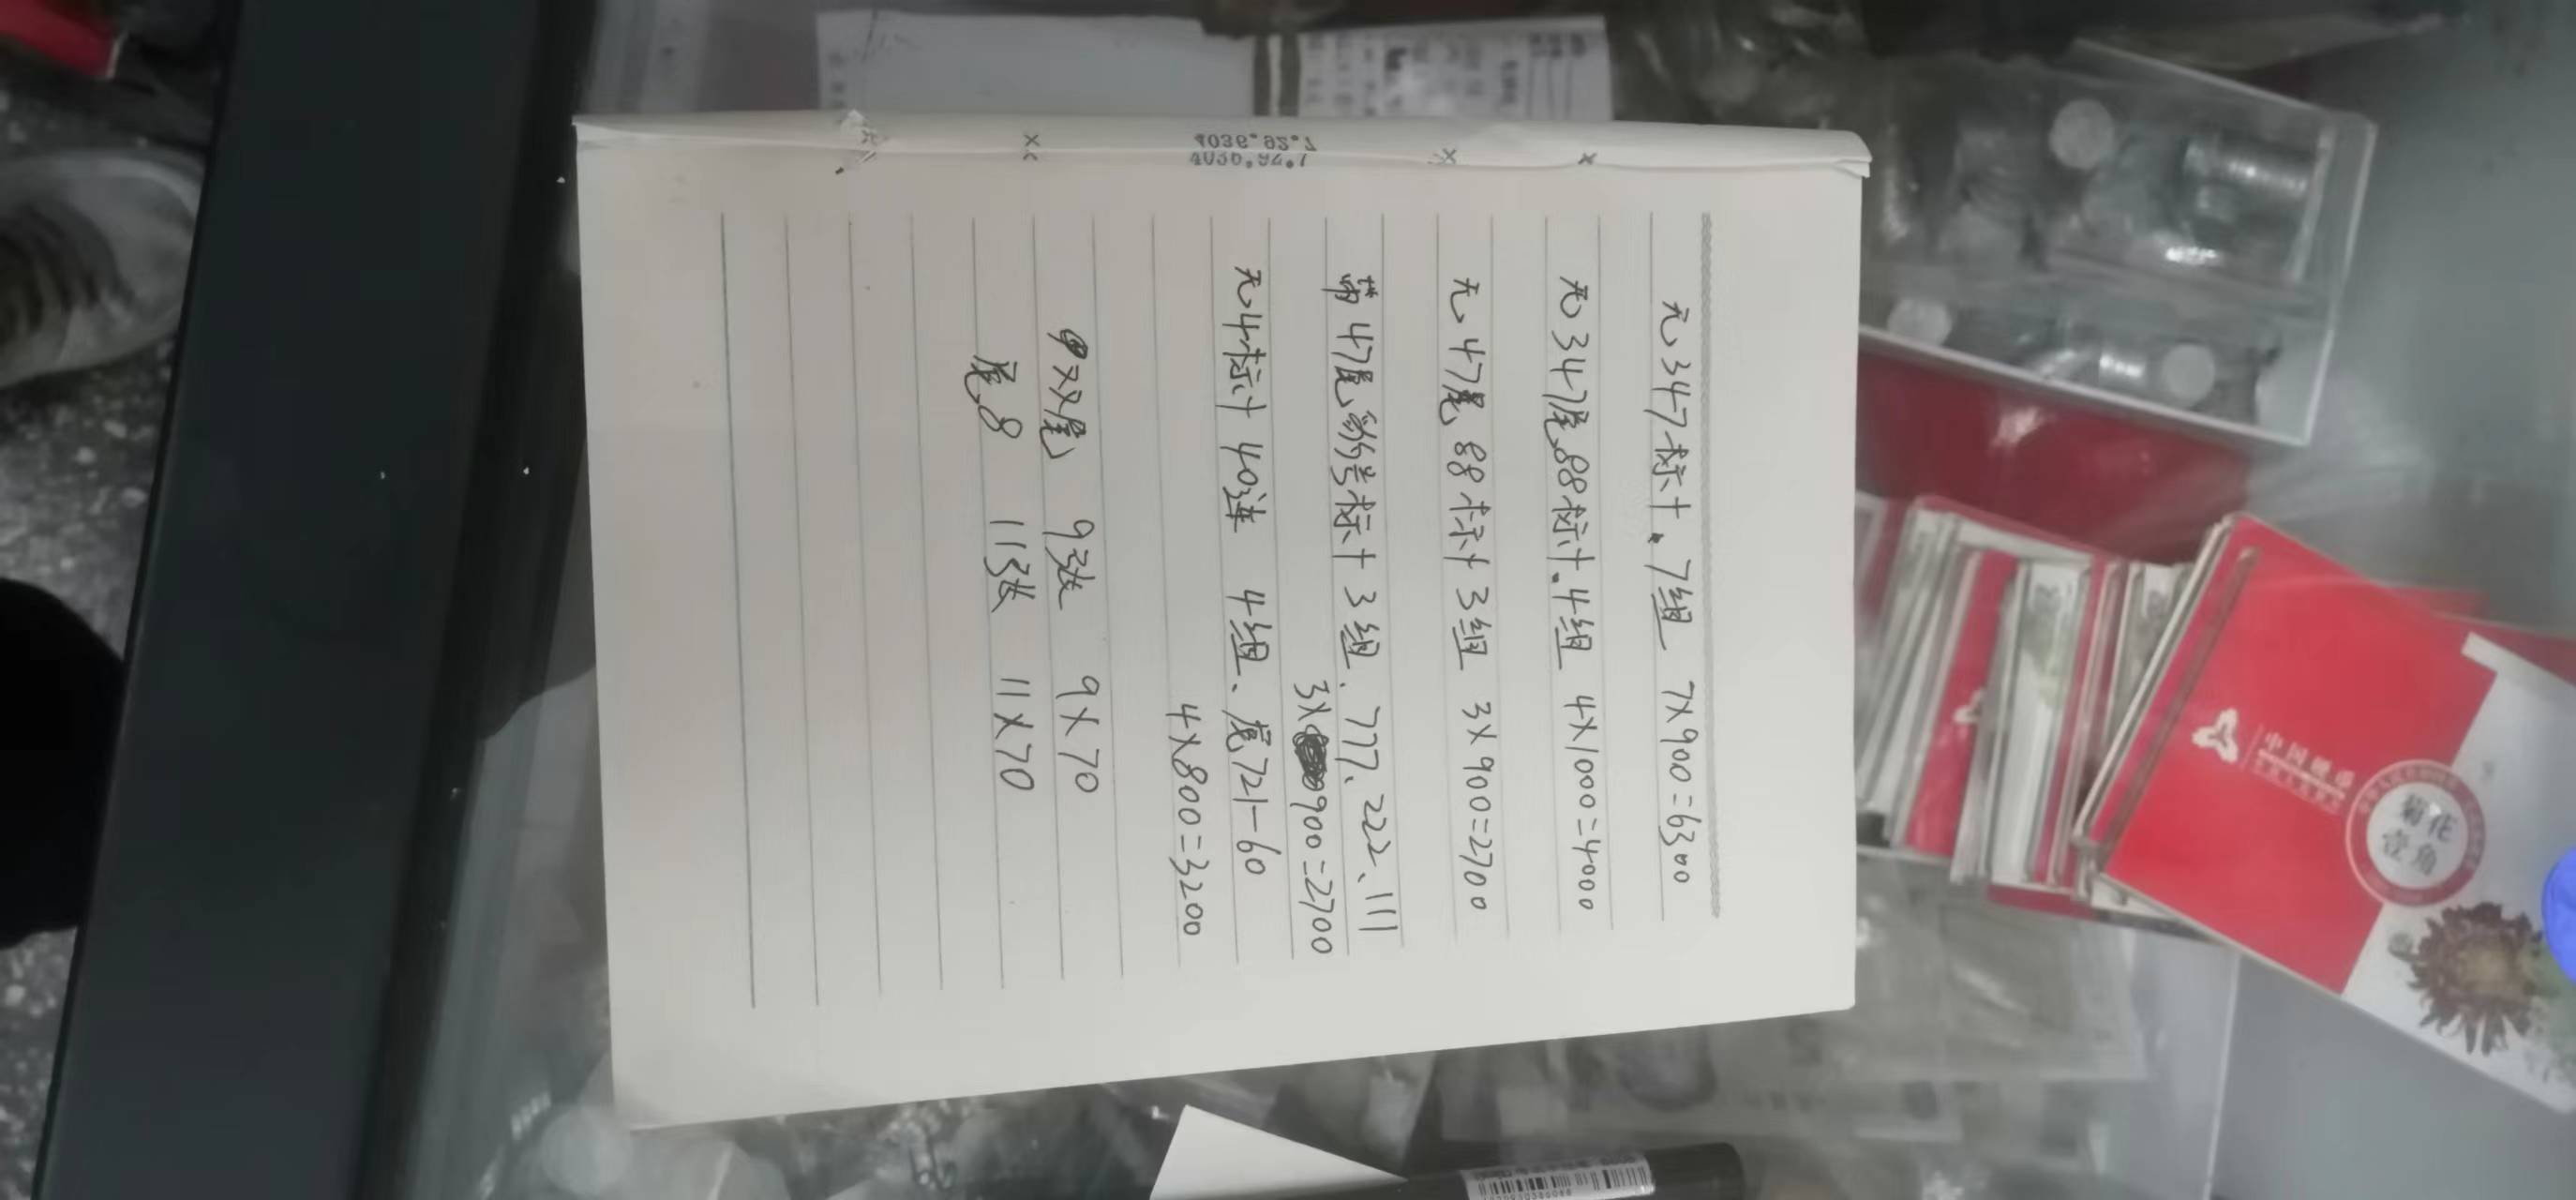 无347标十.7组 7×900=6300
无347尾88标十.4组 4×1000=4000
无47尾88标十3组 3×900=2700
带47尾豹子号标十3组.777、222、111
3×900=2700
无4标十 40连 4组、尾721-60
4×800=3200
中双尾 9张 9×70
尾8 11张 11×70
4036.92.7
中国硬币
菊花
壹角